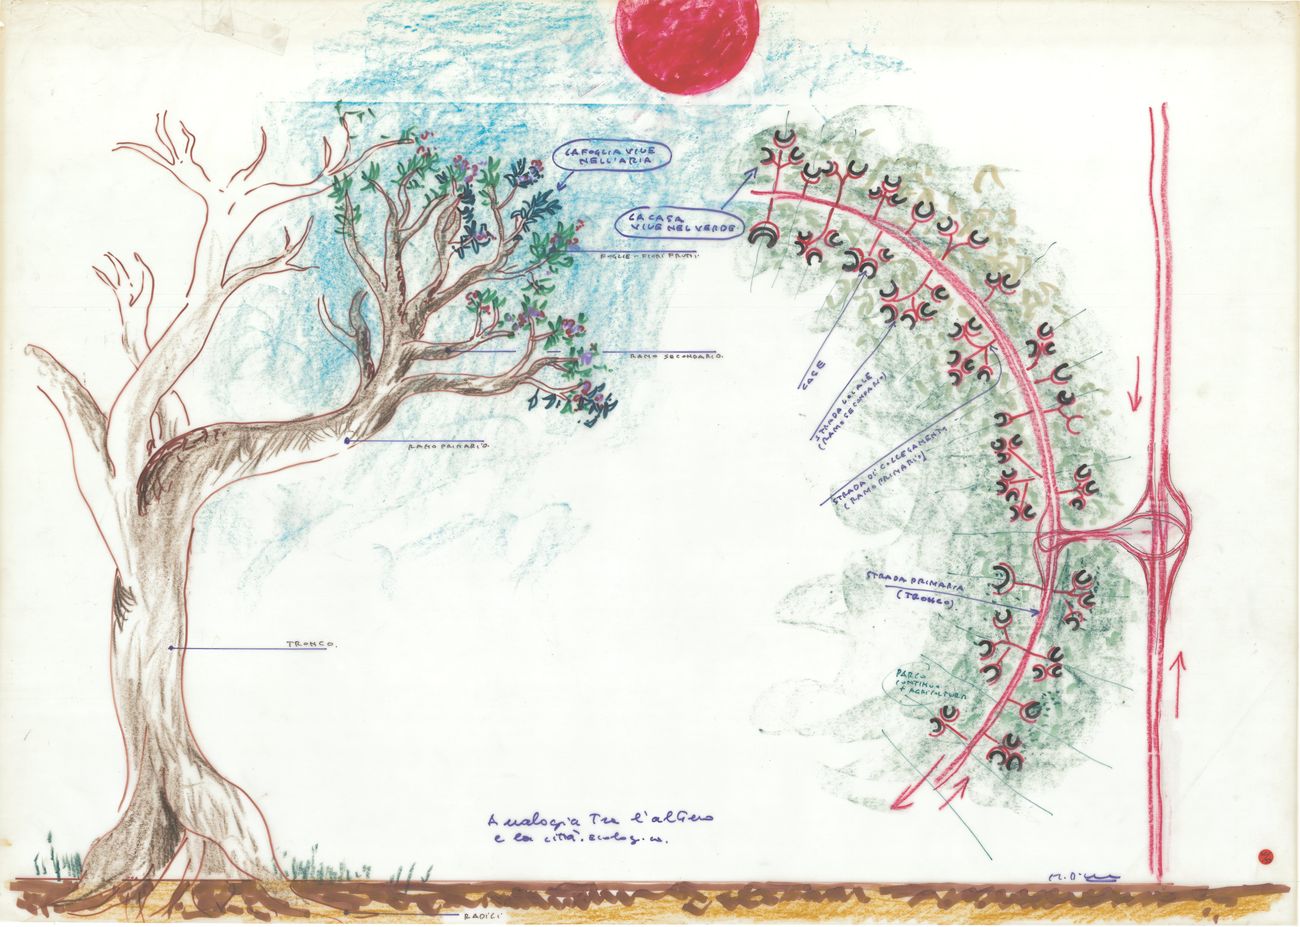 LA FOGLIA VIVE
NELL'ARIA
LA CASA
VIVE NEL VERDE
FOGLIE - FIORI FRUTTI
RAMO SECONDARIO.
RAMO PRIMARIO.
TRONCO.
RADICI
CASE
STRADA LOCALE
(RAMO SECONDARIO)
STRADA DI COLLEGAMENTO
(RAMO PRIMARIO)
STRADA PRIMARIA
(TRONCO)
PARCO
CONTINUO
+ AGRICOLTURA
Analogia Tra l'albero
e la città ecologica.